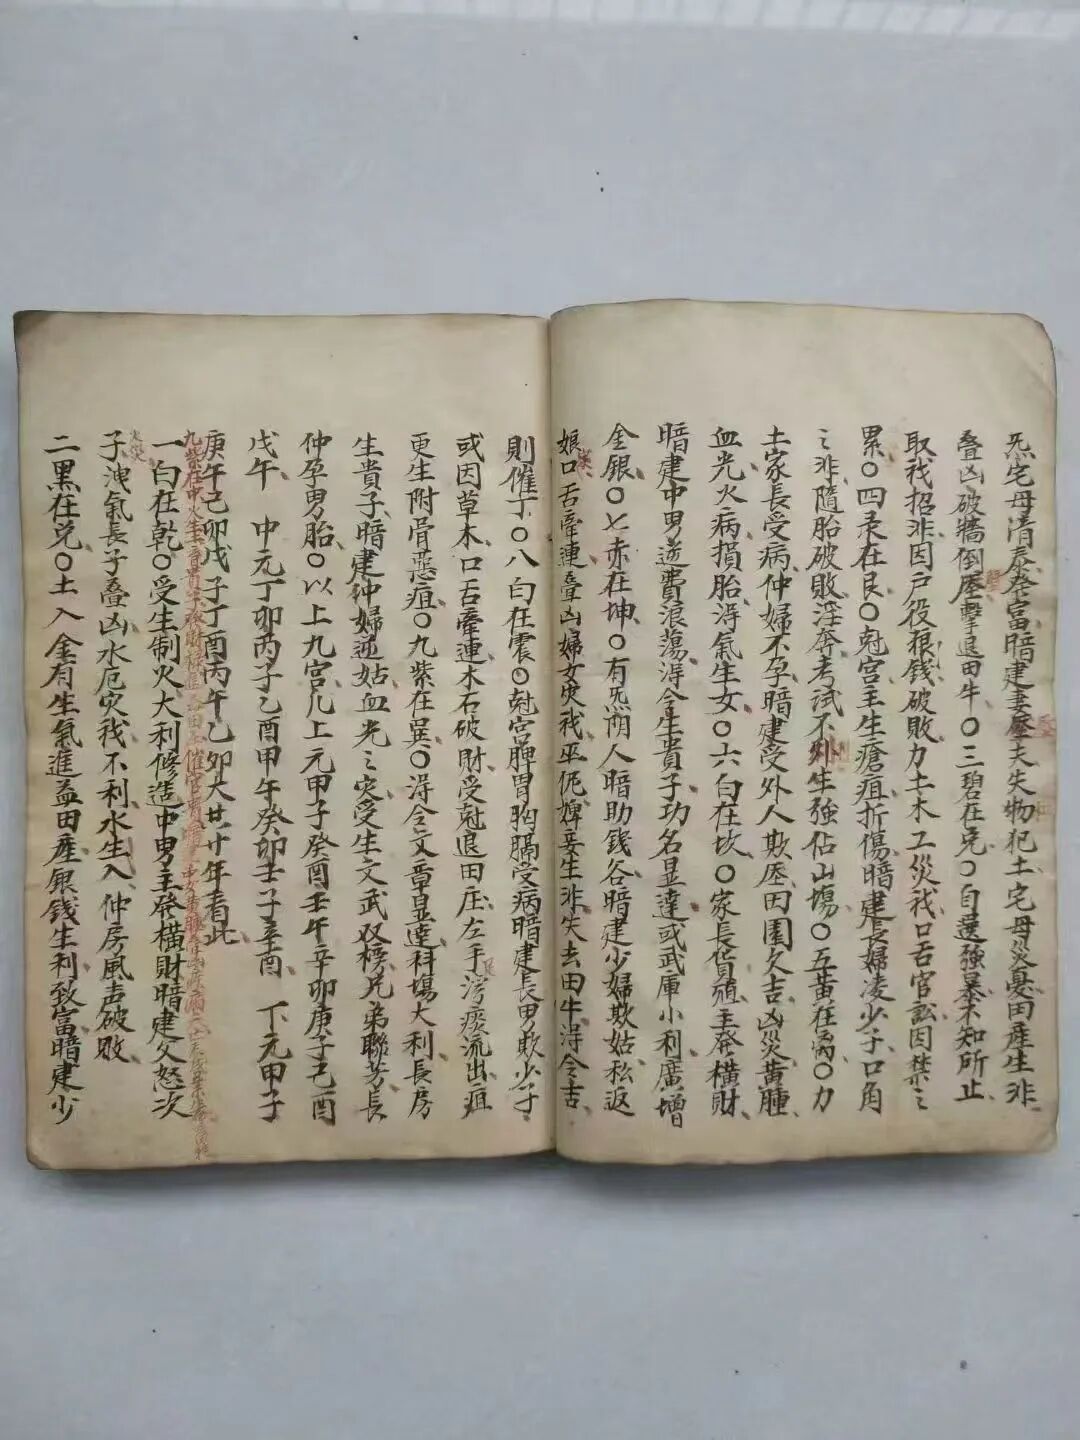 炁宅母清泰發富暗建妻壓夫失物犯土宅母災憂田産生非
叠凶破牆倒壓擊退田牛〇三碧在兑〇自選強暴不知所止
取我招非因户役粮錢破敗力土木工災我口舌官訟因禁之
累〇四彔在艮〇尅宫主生瘡疽折傷暗建長婦凌少子口角
之非隨胎破敗淫奔考試不利外生強佔山塲〇五黄在离〇力
土家長受病仲婦不孕暗建受外人欺壓因園欠吉凶災黄腫
血光火病損胎淂氣生女〇六白在坎〇家長貨殖主発橫財
暗建中男逆費浪蕩淂令生貴子功名显達或武庫小利廣增
金銀〇七赤在坤〇有炁阴人暗助錢谷暗建少婦欺姑私返
娘口舌牽連叠凶婦女災我巫佅婢妾生非失去田牛淂令吉
則催丁〇八白在震〇尅宫脾胃胸膈受病暗建長男欺少子
或因草木口舌牽連木石破財受尅退田庄左手湾痰流出疽
更生附骨惡疽〇九紫在巽〇淂令文章显達科塲大利長房
生貴子暗建仲婦逆姑血光之灾受生文武双榜兄弟聯芳長
仲孕男胎〇以上九宫凡上元甲子癸酉壬午辛卯庚子己酉
戊午 中元丁卯丙子乙酉甲午癸卯壬子辛酉 下元甲子
庚午己卯戊子丁酉丙午乙卯大廿廿年看此
九紫在中火生
一白在乾〇受生制火大利修造中男主發橫財暗建父怒次
子洩氣長子叠凶水厄灾我不利水生入仲房風声破敗
二黑在兑〇土入金有生氣進益田産銀錢生利致富暗建少